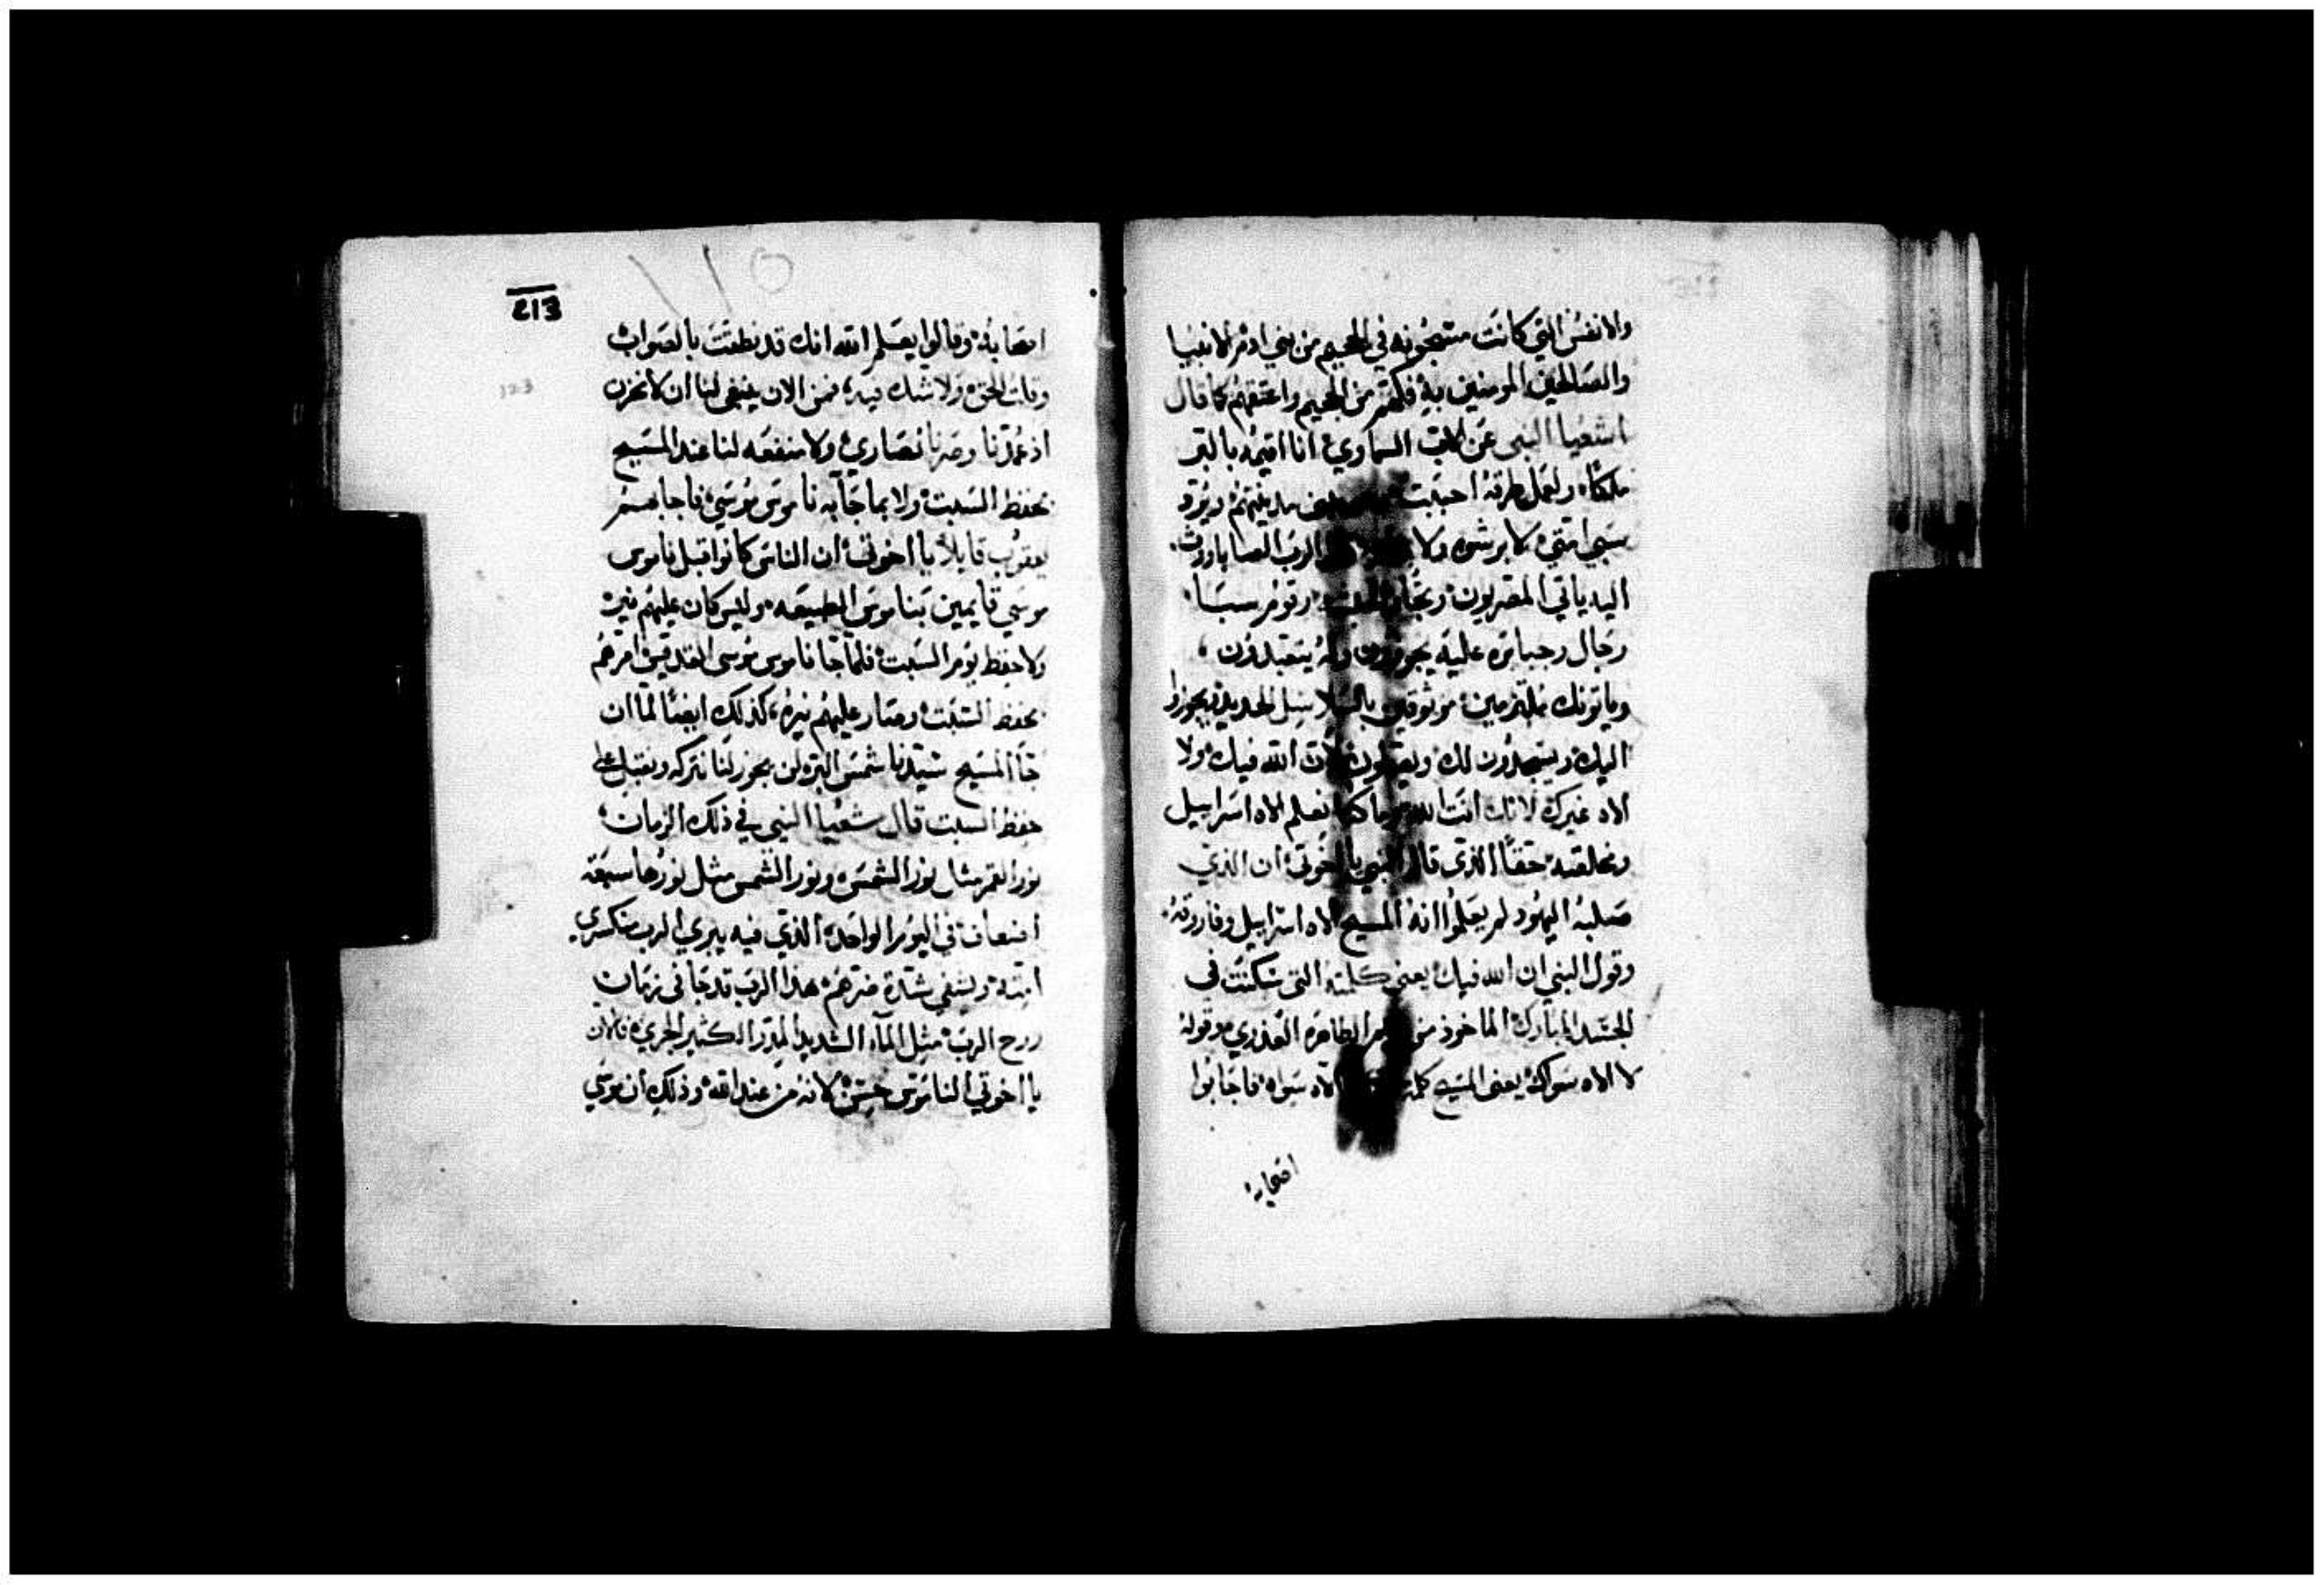 والانفس التي كانت مسجونه في الجحيم من بني ادم الانبيا
والصالحين المومنين به فكهم من الجحيم واعتقهم كما قال
اشعيا النبي عن الاب السماوي انا اقيمه بالبر
ملكًا ولعمل طرقه احببت مدينتهم ويرد
سبي امتي لا برشوه ولا الرب الصاباووت
اليه ياتي المصريون وتجار وقوم سبا
رجال جبابره عليه يجوزون وله يتعبدون
وياتونك ملتزمين موثوقين بالسلاسل الحديد يجوزوا
اليك ويسجدون لك ويقولون لان الله فيك ولا
الاه غيرك لانك انت الله وما كنا نعلم الاه اسراييل
ومخلصه حقًا الذي قال النبي يا اخوتي ان الذي
صلبه اليهود لم يعلموا انه المسيح الاه اسراييل وفاروقه
وقول النبي ان الله فيك يعني كلمته التي سكنت في
الجسد المبارك الماخوذ من مريم الطاهره العذري وقوله
لا الاه سواك يعني المسيح كلمة الاه سواه فاجابوا
اصحابه
213
115
123
اصحابه وقالوا يعلم الله انك قد نطقت بالصواب
وقلت الحق ولا شك فيه فمن الان ينبغي لنا ان لا نحزن
اذ عمدنا وصرنا نصاري ولا منفعه لنا عند المسيح
بحفظ السبت ولا بما جآ به ناموس موسي فاجابهم
يعقوب قايلاً يا اخوتي ان الناس كانوا قبل ناموس
موسي قايمين بناموس الطبيعه وليس كان عليهم نير
ولا حفظ يوم السبت فلما جا ناموس موسي الصديق امرهم
بحفظ السبت وصار عليهم نيره كذلك ايضًا لما ان
جآ المسيح سيدنا شمس البر لن يجوز لنا نتركه ونقبل على
حفظ السبت قال شعيا النبي في ذلك الزمان
نور القمر مثل نور الشمس ونور الشمس مثل نورها سبعة
اضعاف في اليوم الواحد الذي فيه يبري الرب منكسري
امته ويشفي شدة ضرهم هذا الرب قد جا في زمان
روح الرب مثل المآء الشديد المدرار الكثير الجري فالان
يا اخوتي الناموس حسن لانه من عند الله وذلك ان موسي